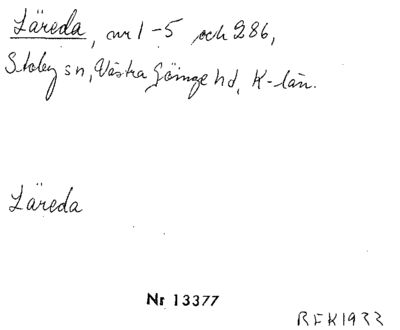 Läreda, nr 1-5 och 286,
Stoby sn, Västra Göinge hd, K-län.
Läreda
Nr 13377
BFK1933